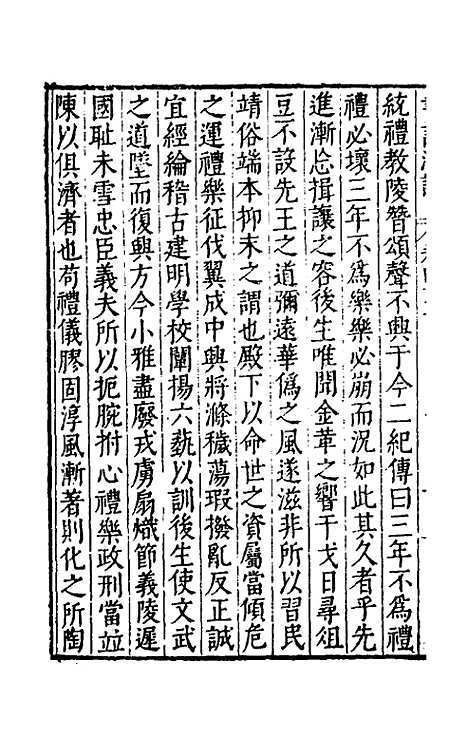 紞禮教陵替頌聲不興于今二紀傳曰三年不爲禮
禮必壞三年不爲樂樂必崩而況如此其久者乎先
進漸忘揖讓之容後生唯聞金革之響干戈日尋俎
豆不設先王之道彌遠華僞之風遂滋非所以習民
靖俗端本抑末之謂也殿下以命世之資屬當傾危
之運禮樂征伐翼成中興將滌穢蕩瑕撥亂反正誠
宜經綸稽古建明學校闡揚六藝以訓後生使文武
之道墜而復興方今小雅盡廢戎虜扇熾節義陵遲
國恥未雪忠臣義夫所以扼腕拊心禮樂政刑當竝
陳以俱濟者也苟禮儀膠固淳風漸著則化之所陶